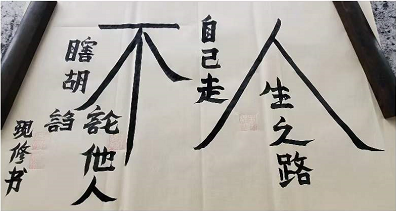 人生之路
自己走
不託他人
瞎胡謅
现修书